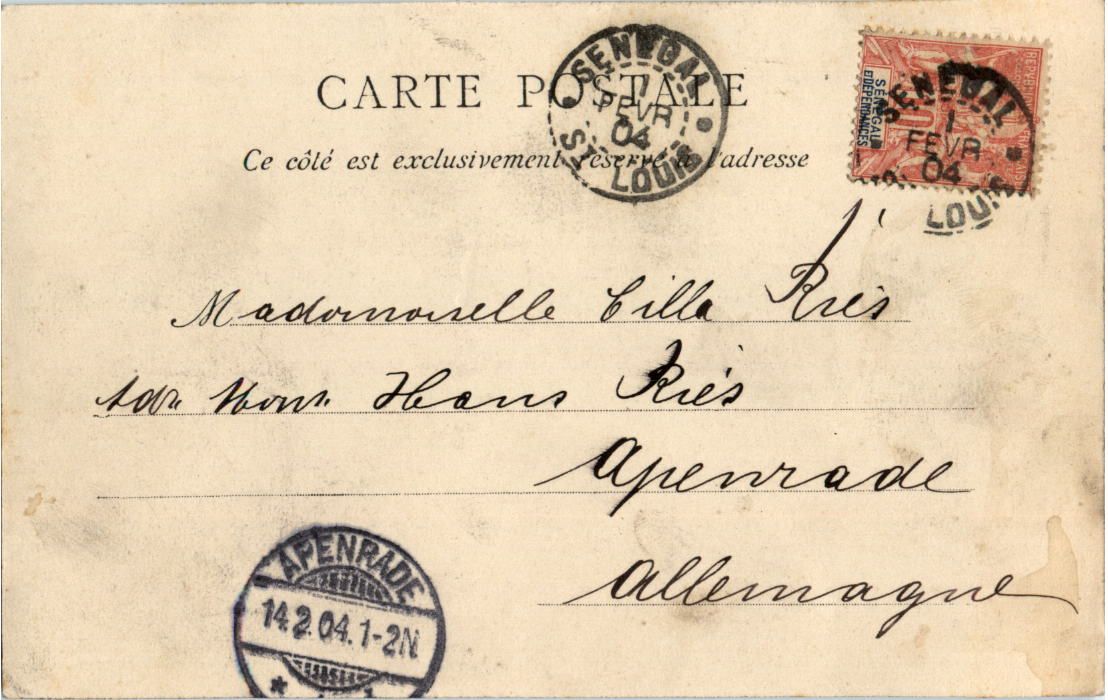 CARTE POSTALE
Ce côté est exclusivement réservé à l'adresse
SENEGAL
1
FEVR
04
ST LOUIS
SÉNÉGAL
ET DÉPENDANCES
10
SENEGAL
1
FEVR
04
LOUIS
Mademoiselle Cilla Riés
Adr. Mons. Hans Riés
Apenrade
Allemagne
APENRADE
14.2.04.1-2N
*